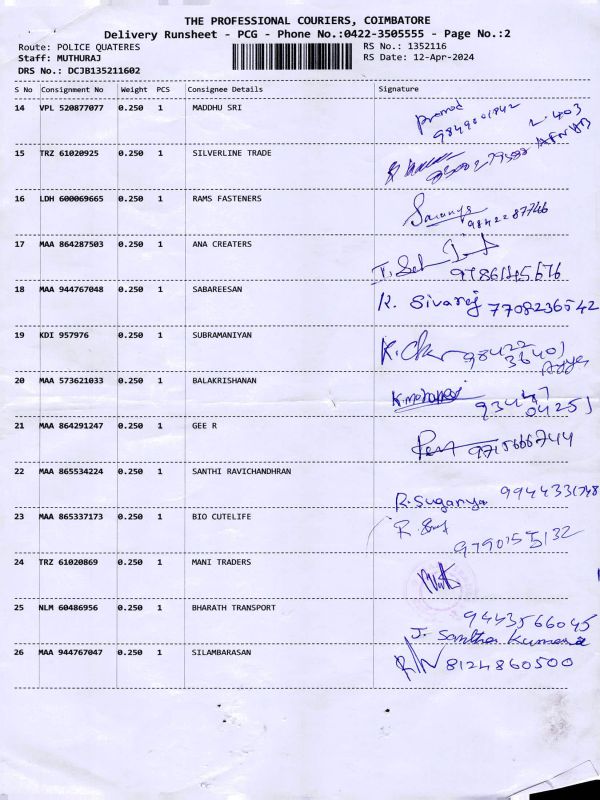 THE PROFESSIONAL COURIERS, COIMBATORE
Delivery Runsheet - PCG - Phone No.:0422-3505555 - Page No.:2
Route: POLICE QUATERES
RS No.: 1352116
Staff: MUTHURAJ
RS Date: 12-Apr-2024
DRS No.: DCJB135211602
S No Consignment No Weight PCS Consignee Details Signature
14 VPL 520877077 0.250 1 MADDHU SRI
Pramod
15 TRZ 61020925 0.250 1 SILVERLINE TRADE
16 LDH 600069665 0.250 1 RAMS FASTENERS
Saranya
9842287746
17 MAA 864287503 0.250 1 ANA CREATERS
9786145676
18 MAA 944767048 0.250 1 SABAREESAN
K. Sivaraj 7708236542
19 KDI 957976 0.250 1 SUBRAMANIYAN
98422
36401
20 MAA 573621033 0.250 1 BALAKRISHANAN
K.mohanraj
93447
04251
21 MAA 864291247 0.250 1 GEE R
9715666744
22 MAA 865534224 0.250 1 SANTHI RAVICHANDHRAN
R.Suganya 9944331748
23 MAA 865337173 0.250 1 BIO CUTELIFE
9790155132
24 TRZ 61020869 0.250 1 MANI TRADERS
25 NLM 60486956 0.250 1 BHARATH TRANSPORT
9443566045
J. Santha Kumar
26 MAA 944767047 0.250 1 SILAMBARASAN
8124860500